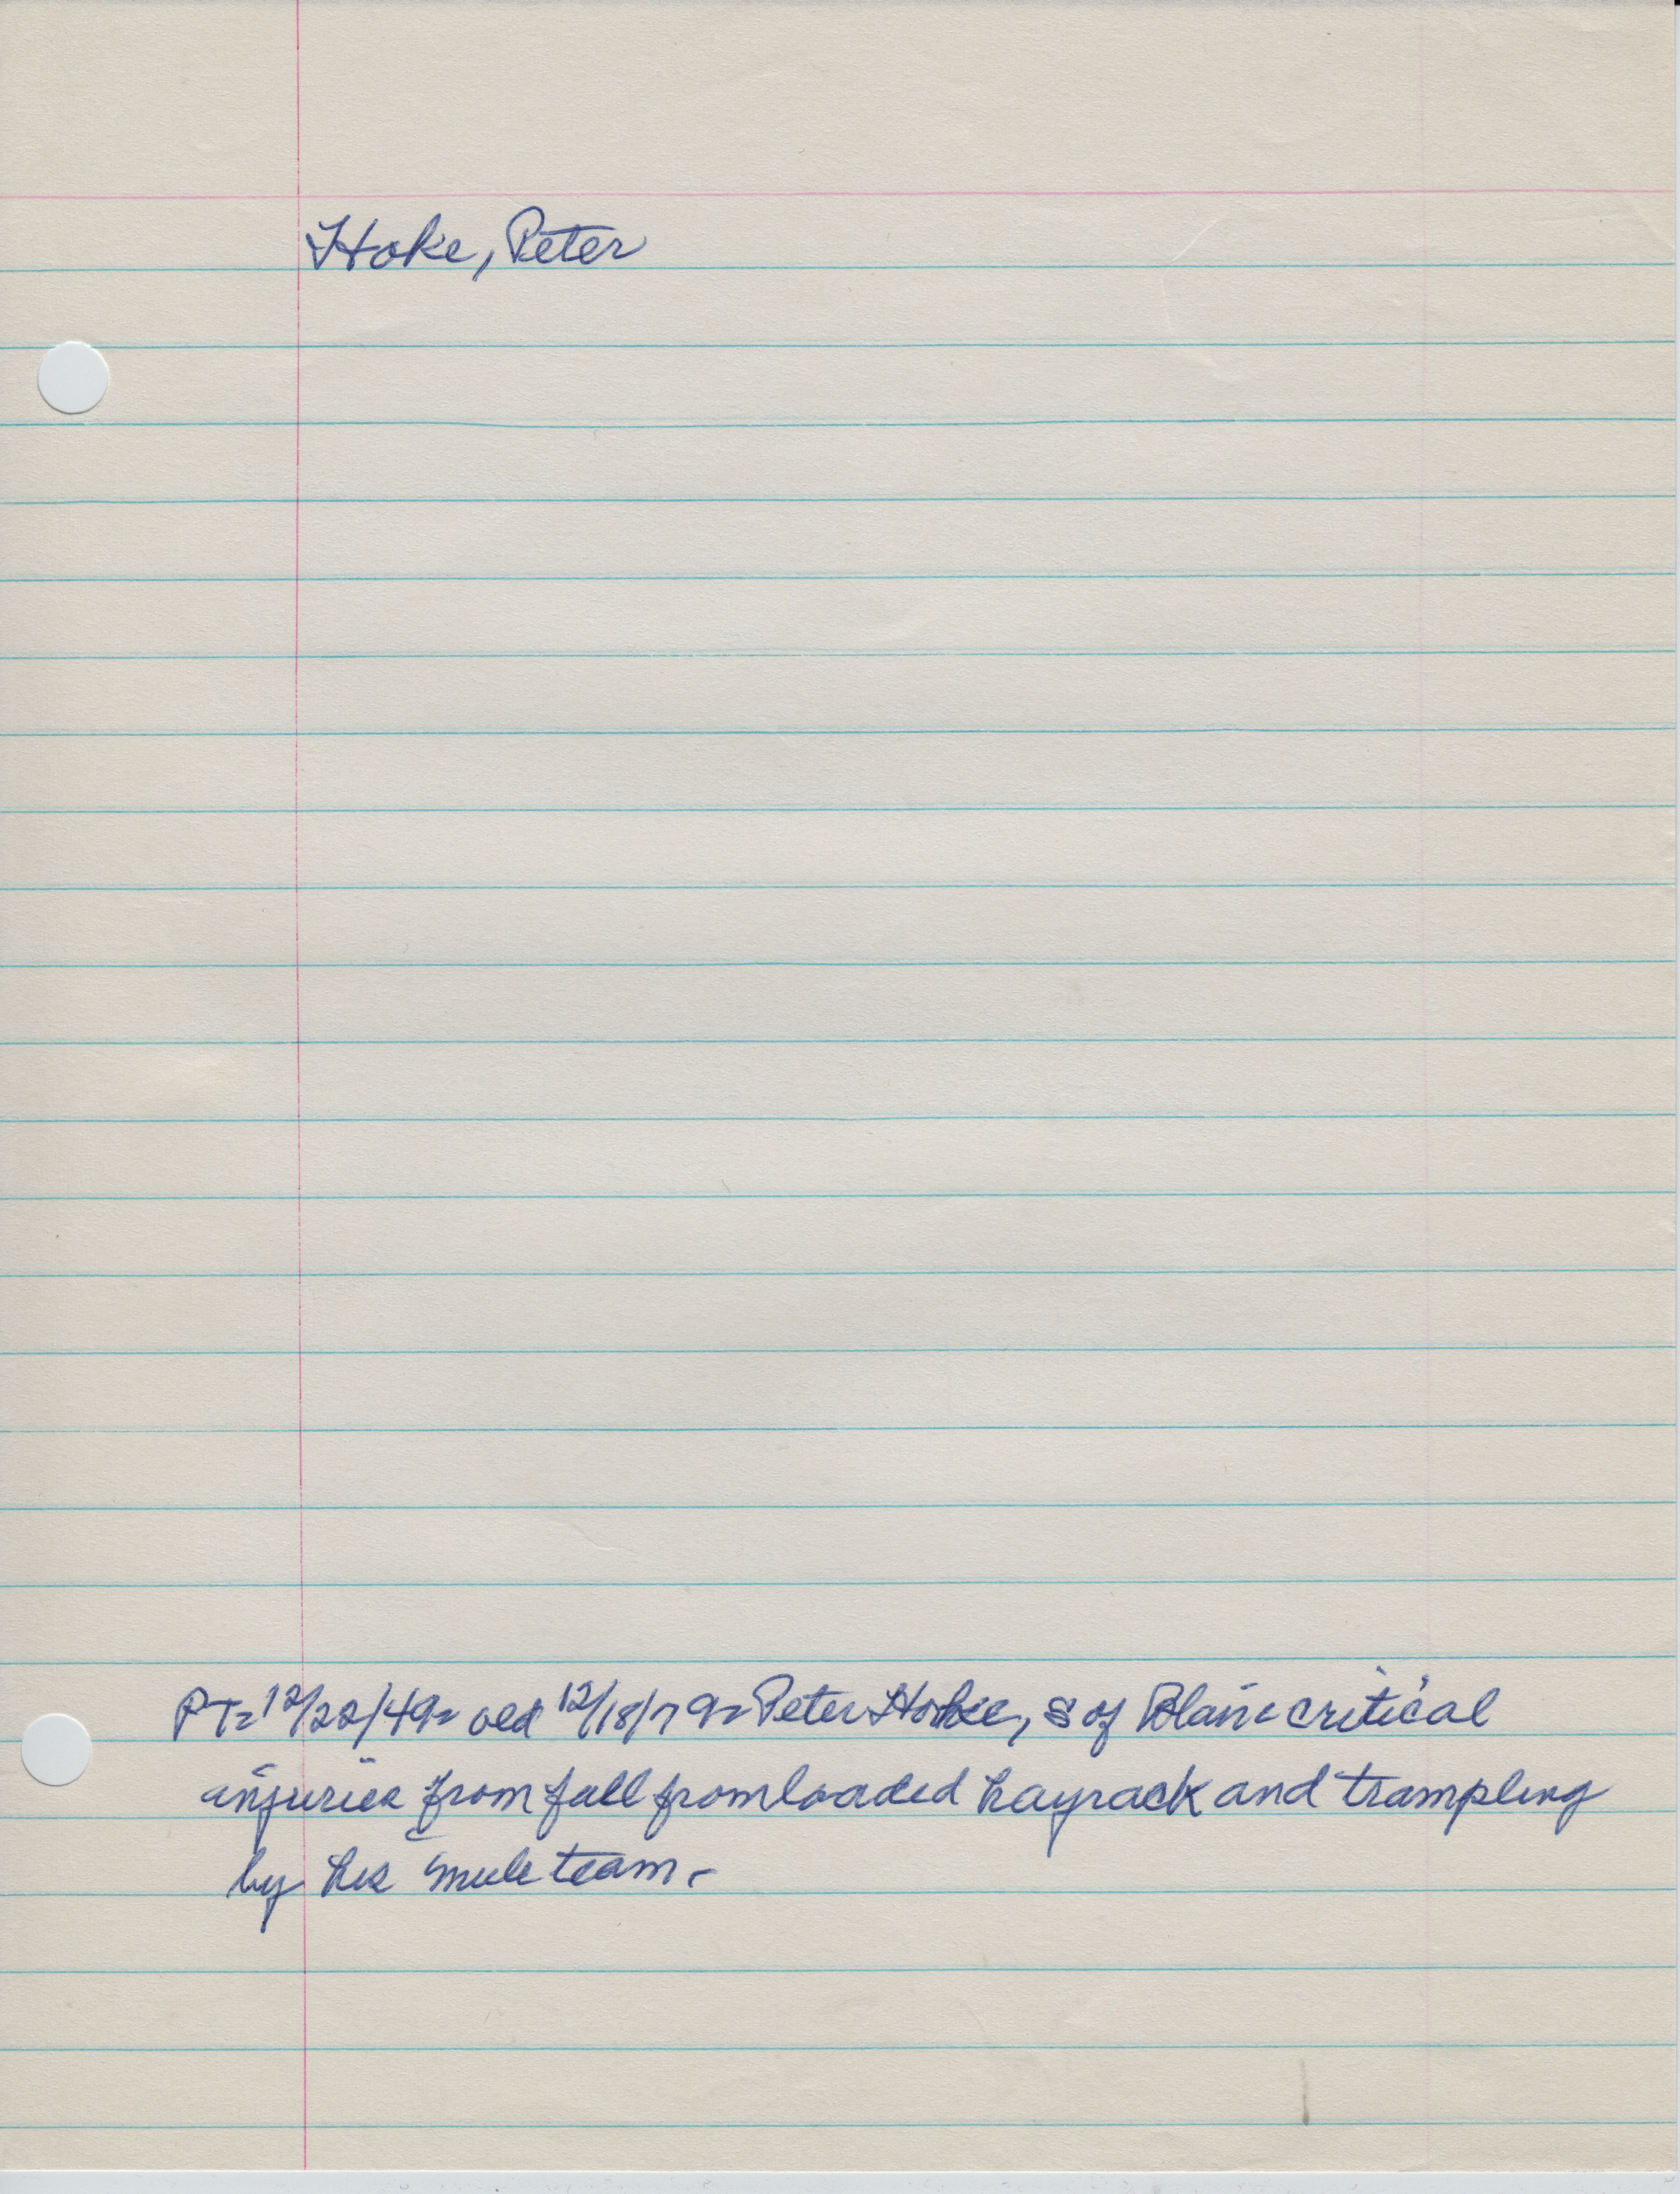 Hoke, Peter
PT= 12/22/49= 12/18/79= Peter Hoke, S of Blain critical
injuries from fall from loaded hayrack and trampling
by his mule team.